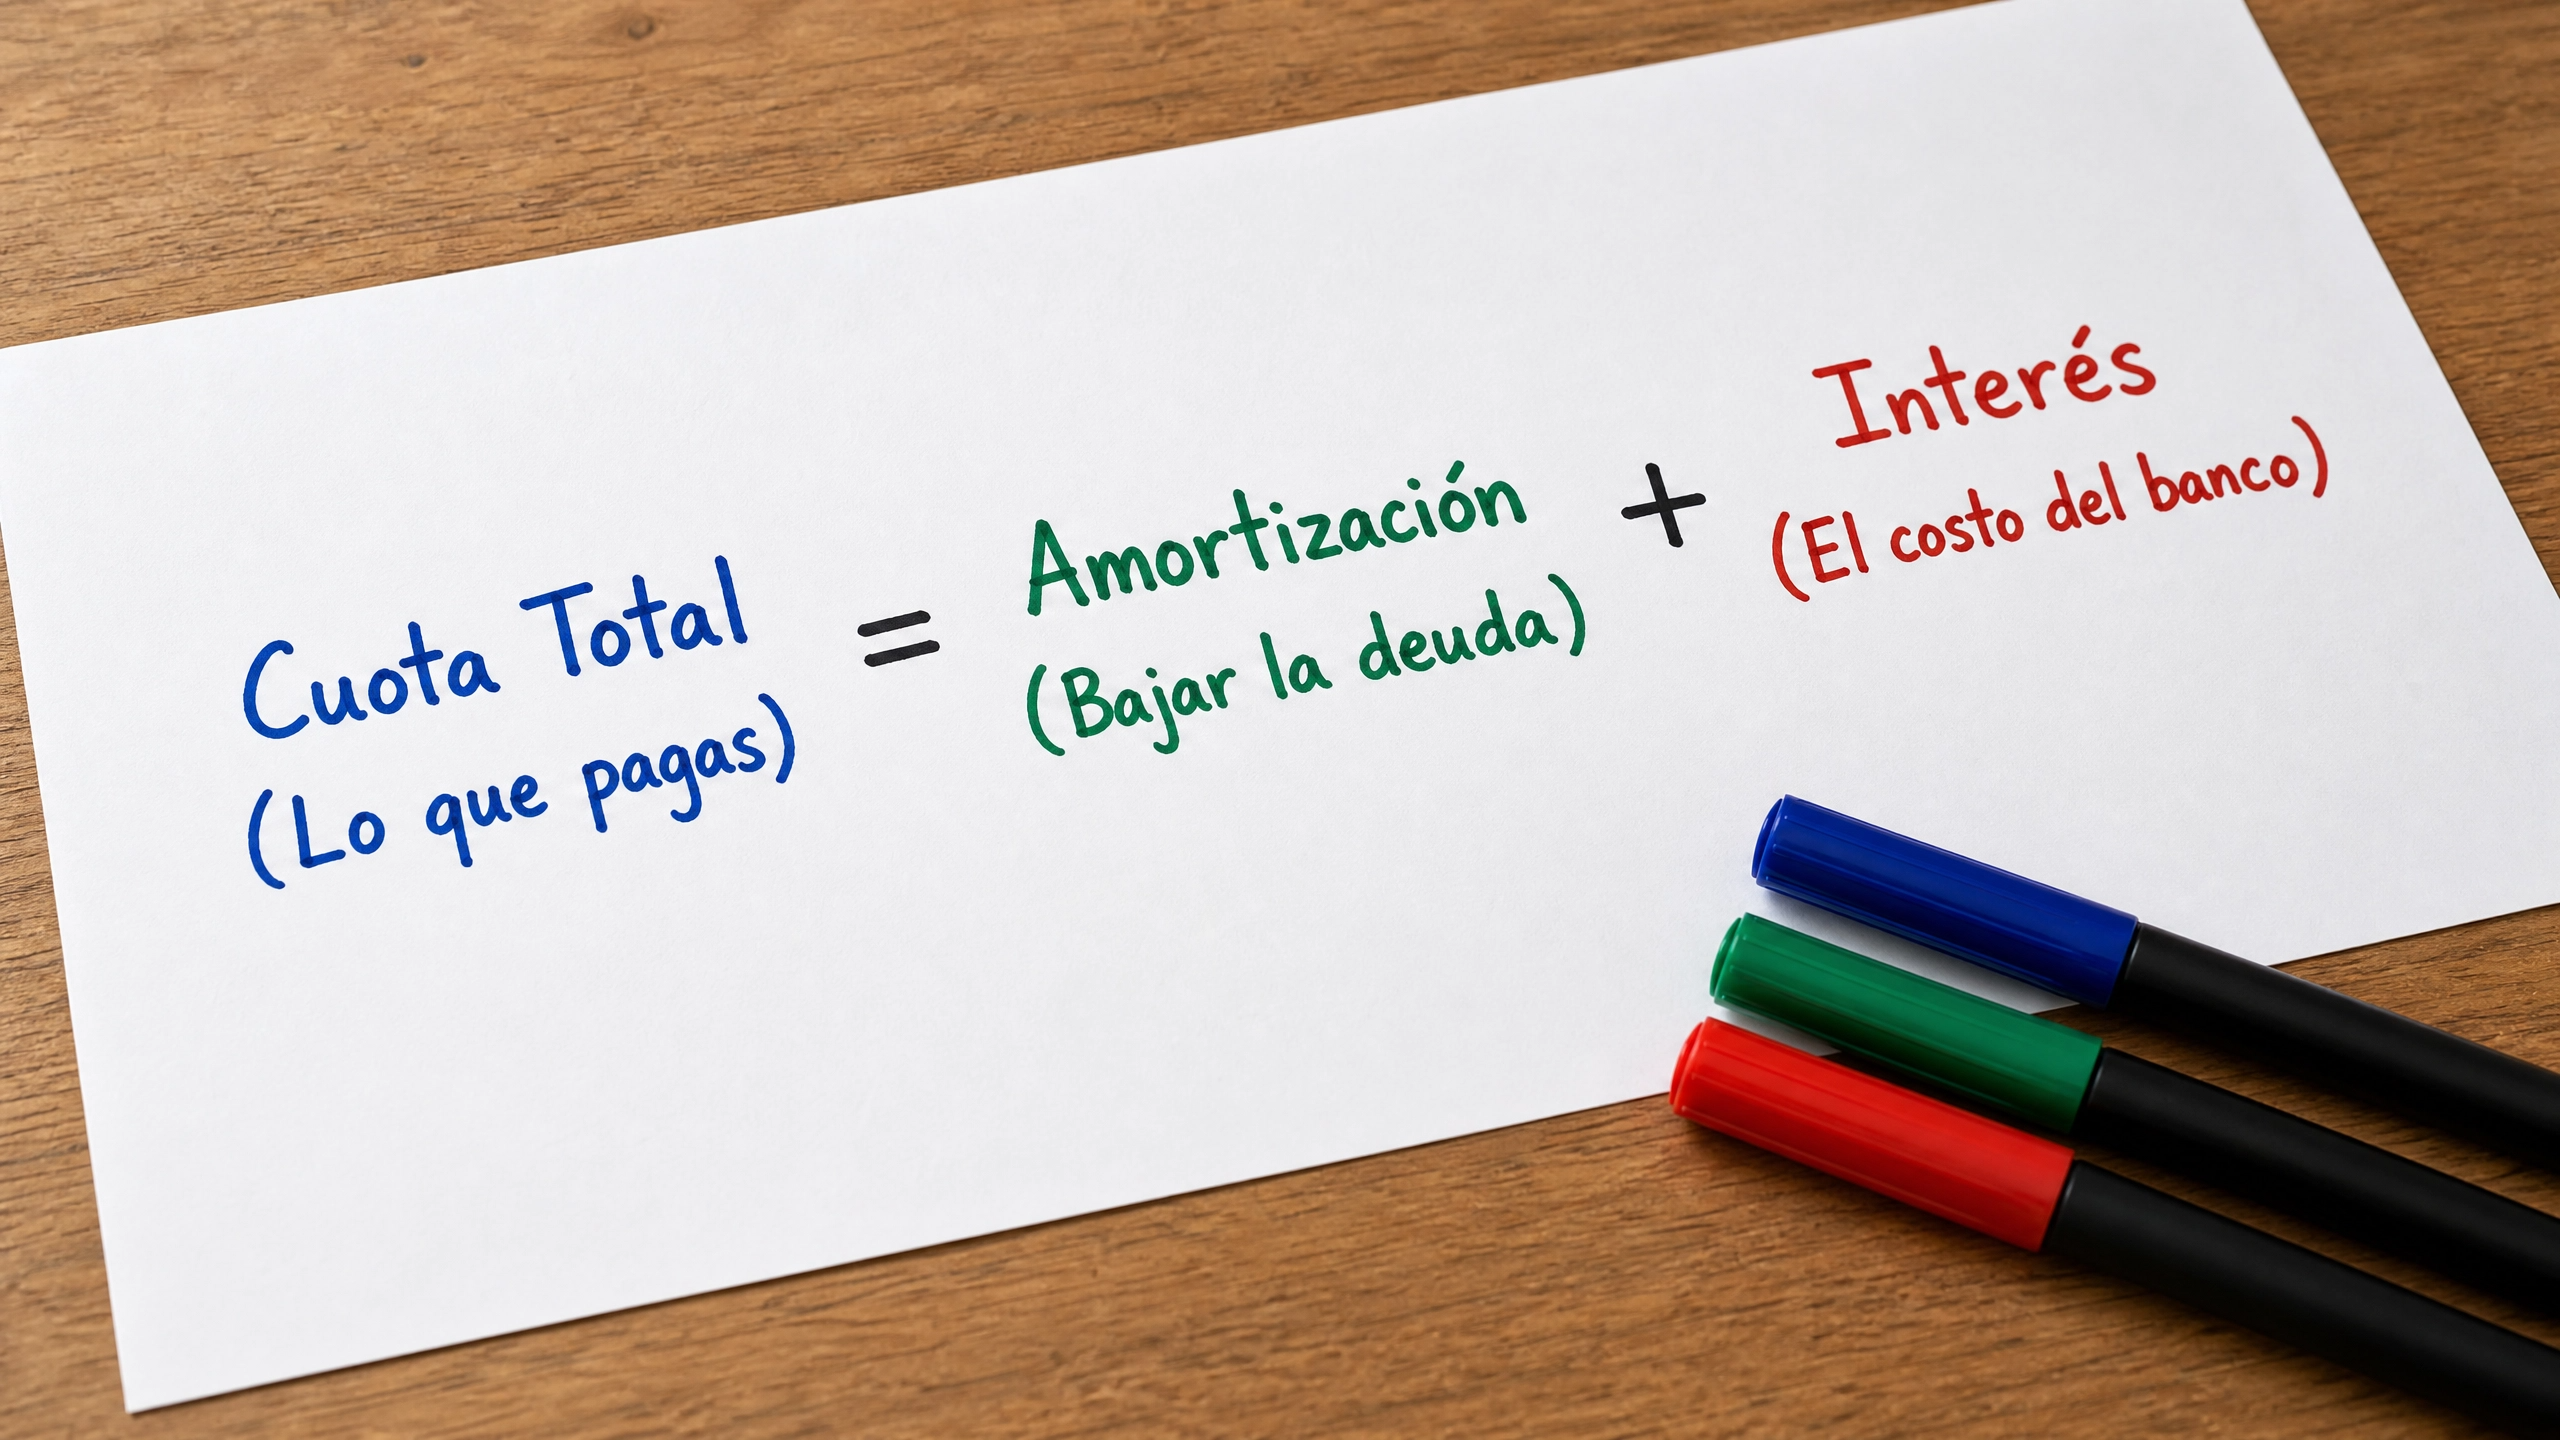 Cuota Total
(Lo que pagas)
=
Amortización
(Bajar la deuda)
+
Interés
(El costo del banco)